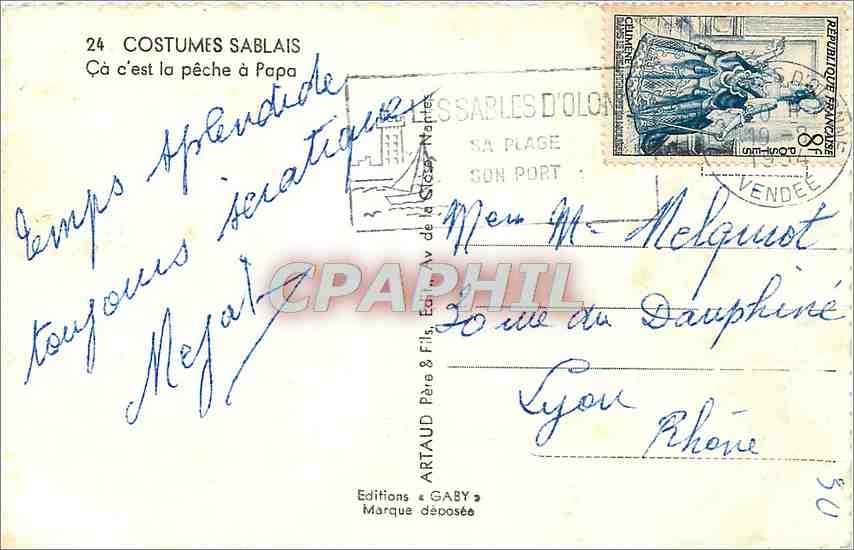 24 COSTUMES SABLAIS
Çà c'est la pêche à Papa
temps splendide
toujours sciatique
Mejat
LES SABLES D'OLON
SA PLAGE
SON PORT
RÉPUBLIQUE FRANÇAISE
8F
POSTES
CÉLIMÈNE
19
1954
VENDÉE
Melquiot
30 rue du Dauphiné
Lyon
Rhône
ARTAUD Père & Fils, Edit. Av. de la Close, Nantes
Editions « GABY »
Marque déposée
CPAPHIL
50